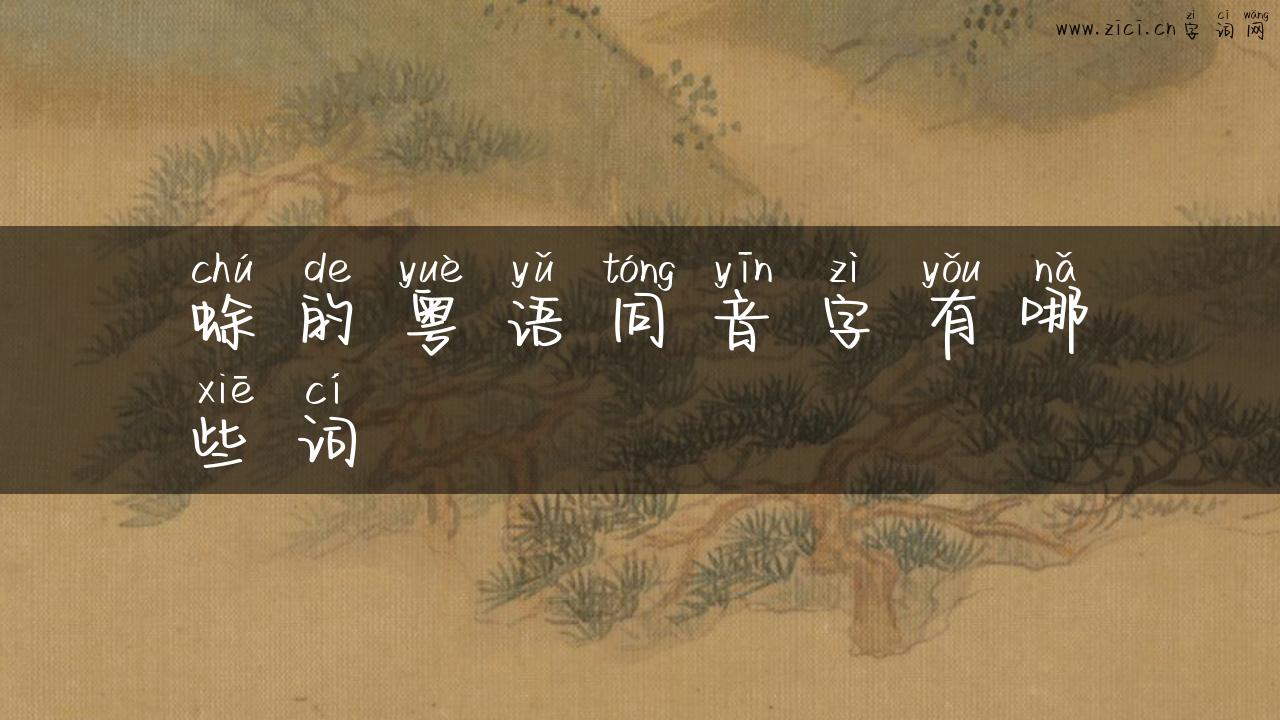 www.zici.cn
zì cí wǎng
字词网
chú de yuè yǔ tóng yīn zì yǒu nǎ
蜍的粤语同音字有哪
xiē cí
些词